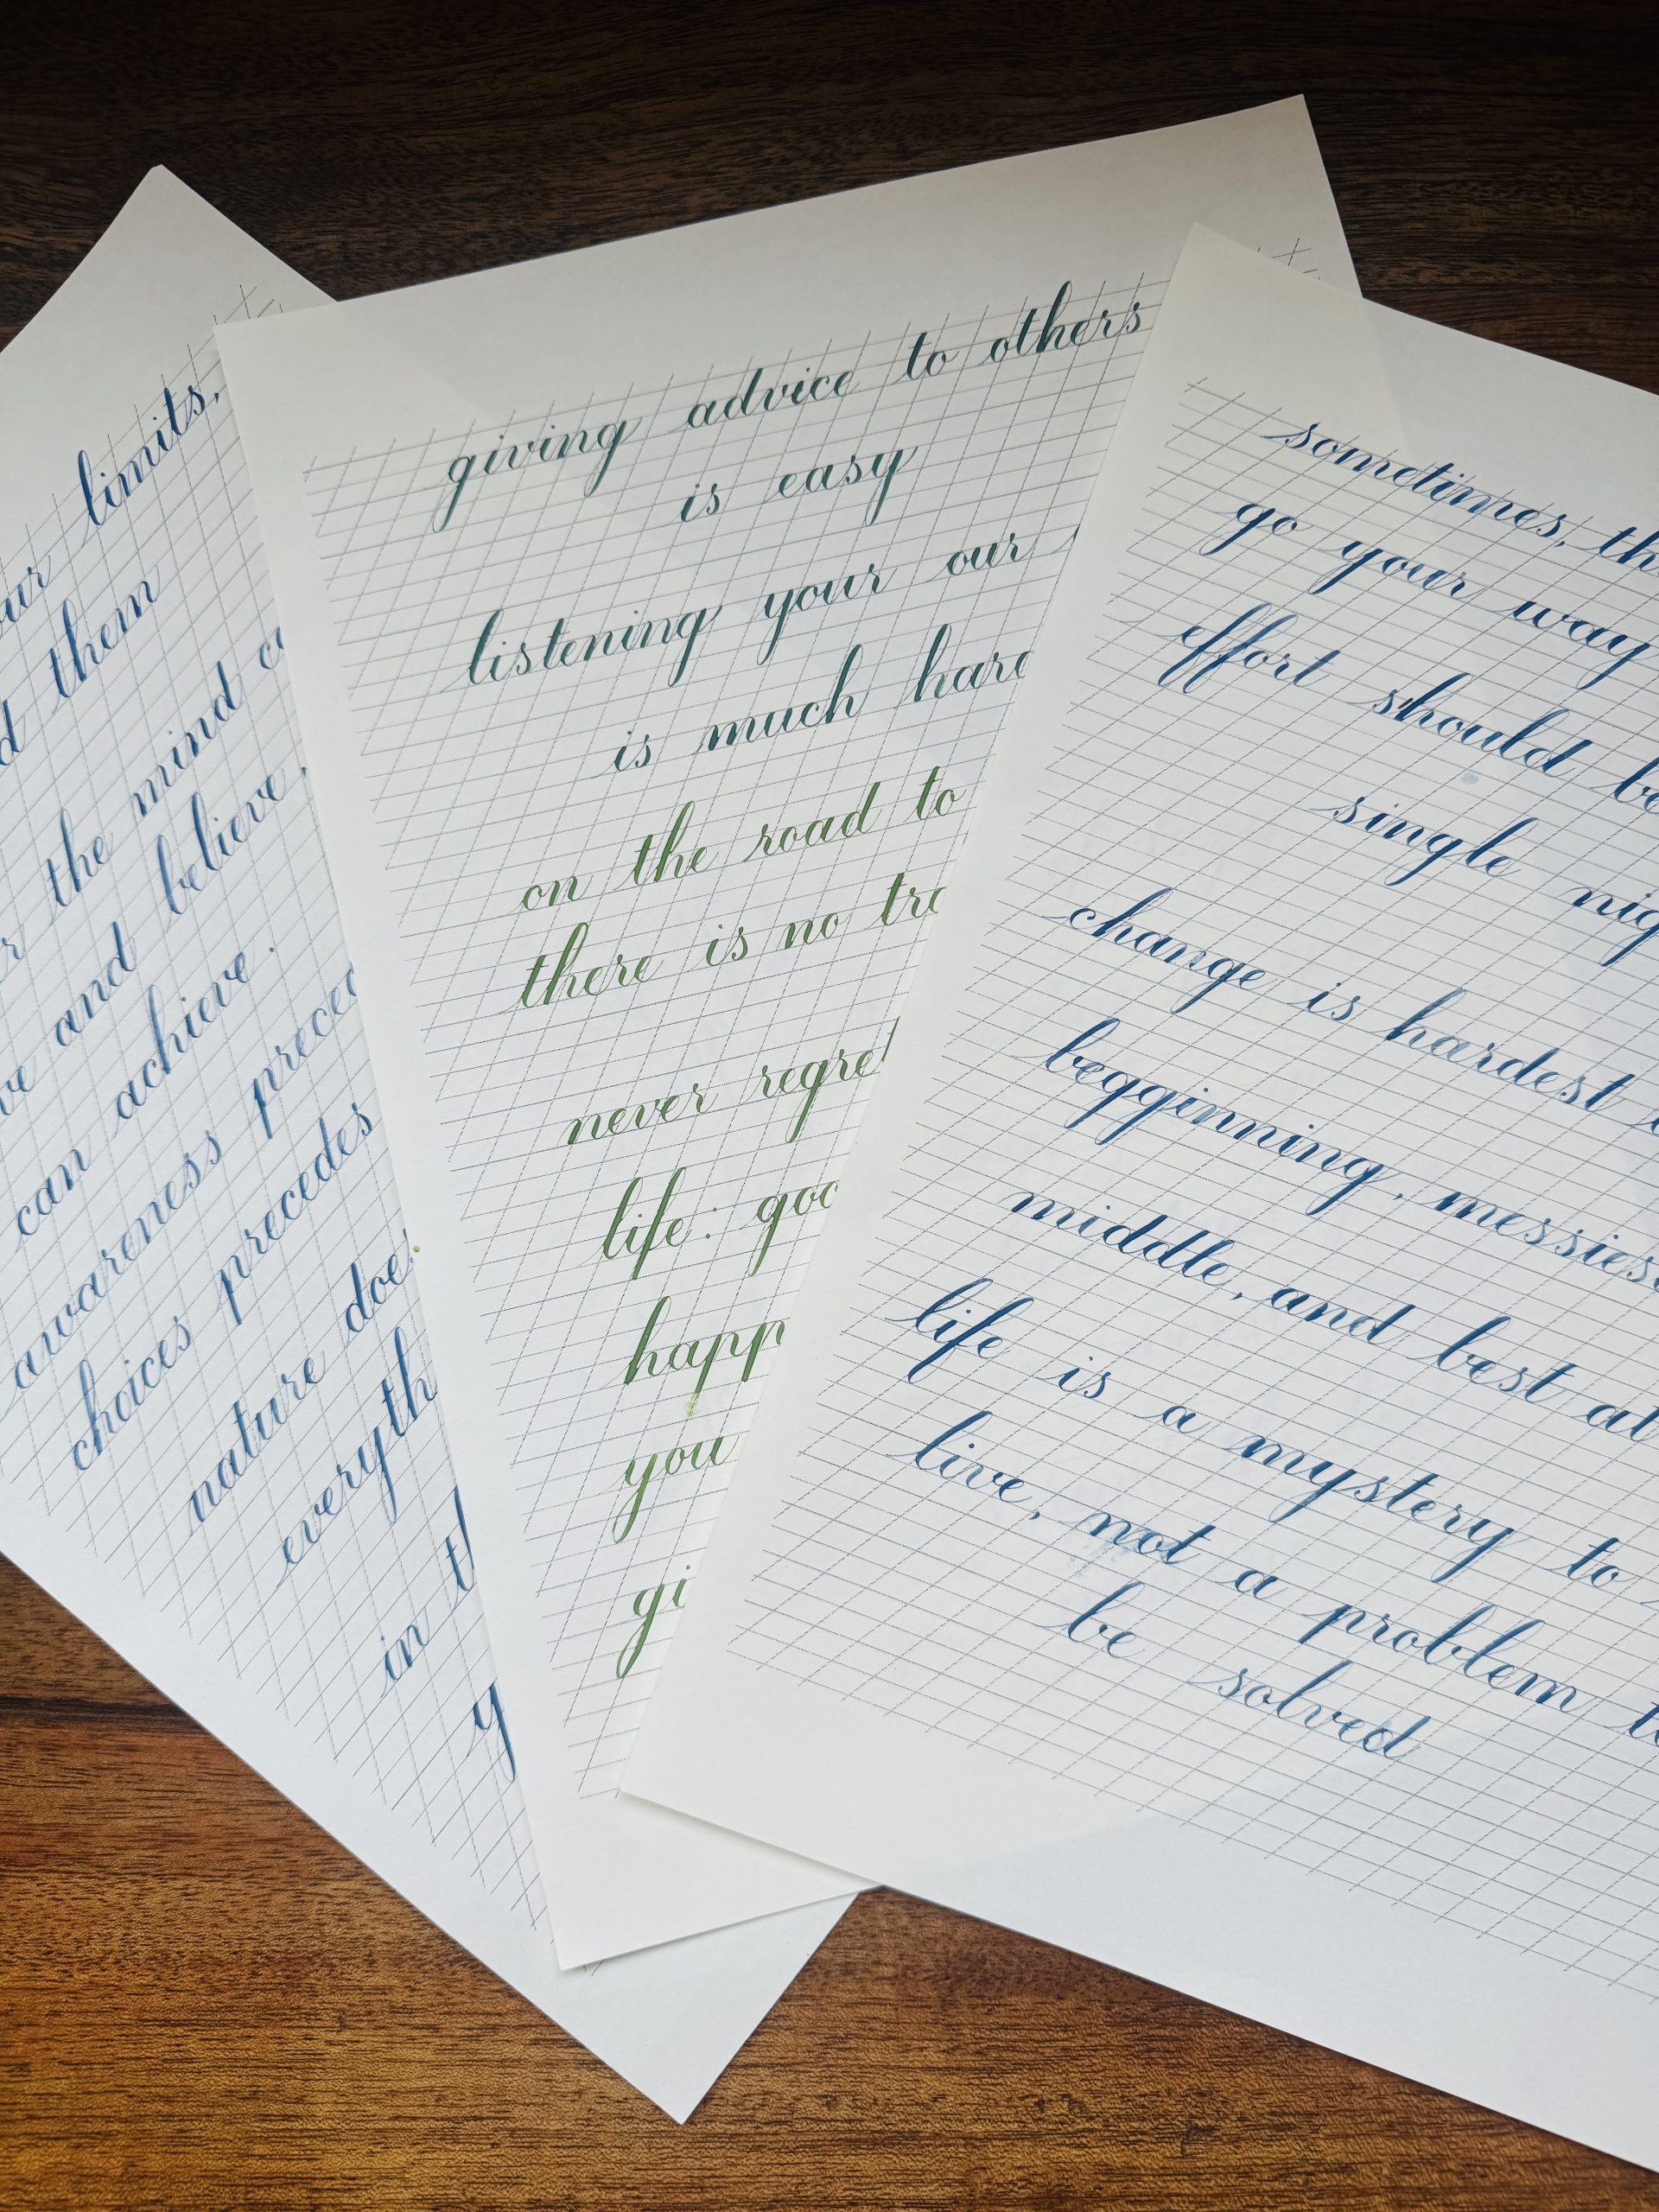 limits,
them
the mind
and believe,
can achieve.
awareness
choices precedes
nature does
in
giving advice to others
is easy
listening your our
is much
on the road to
there is no
never
life:
you
sometimes,
go your way
effort should
single
change is hardest
begginning, messiest
middle, and best at
life is a mystery to
live, not a problem
be solved